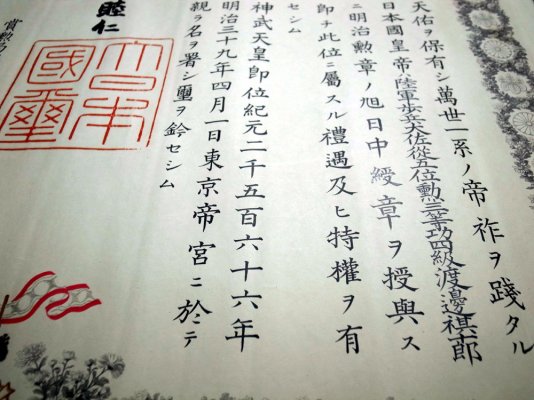 天佑ヲ保有シ萬世一系ノ帝祚ヲ踐タル
日本國皇帝ハ陸軍歩兵大佐從五位勲三等功四級渡邊祺十郎
ニ明治勲章ノ旭日中綬章ヲ授與ス
即チ此位ニ屬スル禮遇及ヒ特權ヲ有
セシム
神武天皇即位紀元二千五百六十六年
明治三十九年四月一日東京帝宮ニ於テ
親ラ名ヲ署シ璽ヲ鈐セシム
睦仁
大日本國璽